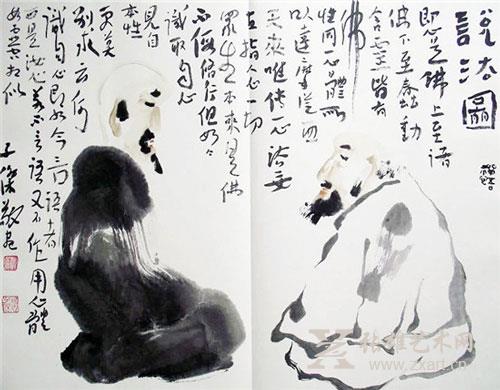 說法圖
即心是佛上至諸
佛下至蠢動
含靈皆有
佛
性同一心體所
以達摩從西
天來唯傳一心法
直指人心一切
眾生本來是佛
不假修行但如今
識取自心
見自
本性
更莫
別求云何
識自心即如今言語者
正是汝心若不言語又不作用心體
如虛空相似
张雄艺术网
www.zxart.cn